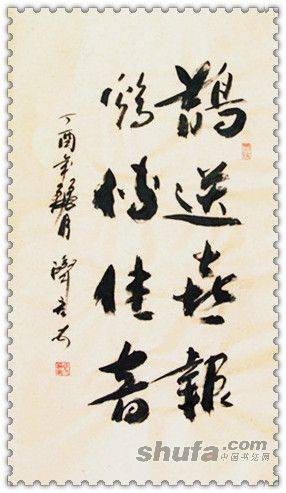 鵲送喜報
鷄傳佳音
丁酉年 月
shufa.com
中国书法网